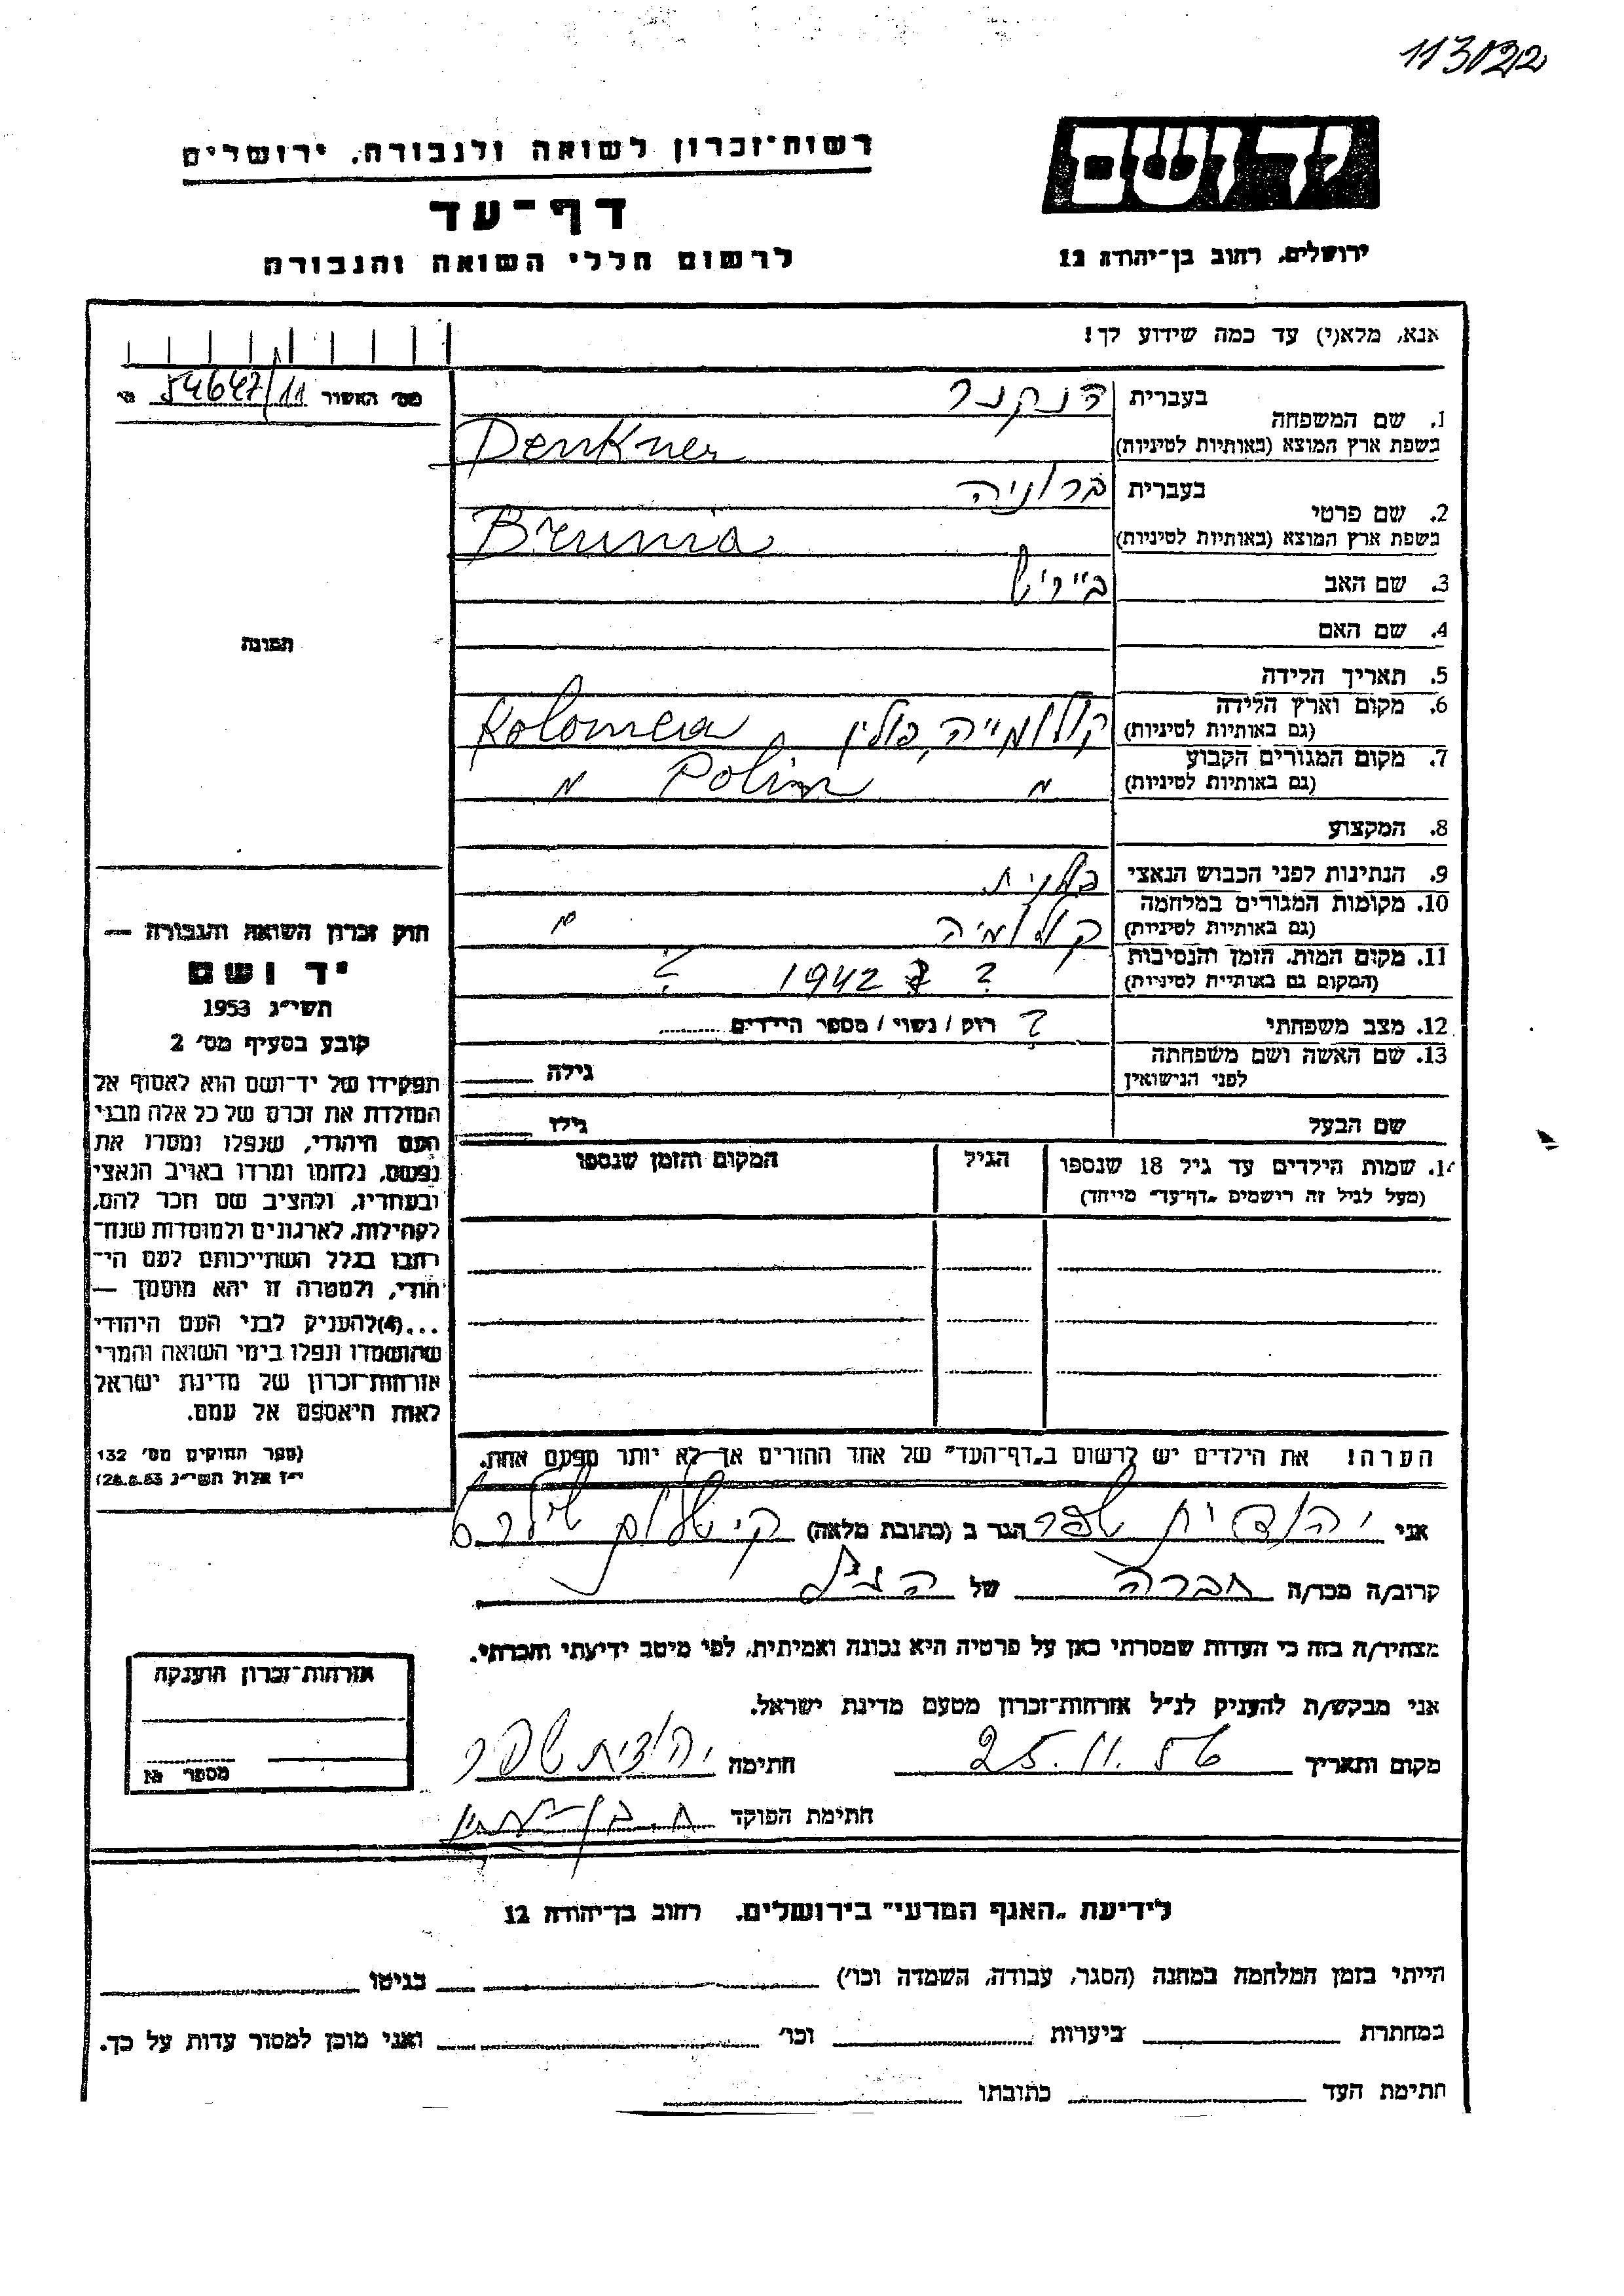 113022
יד ושם
רשות-זכרון לשואה ולגבורה, ירושלים
דף-עד
לרשום חללי השואה והגבורה
ירושלים, רחוב בן-יהודה 12
אנא, מלא(י) עד כמה שידוע לך!
מס' האשור 54647/11
1. שם המשפחה בעברית דנקנר
בשפת ארץ המוצא (באותיות לטיניות) Denkner
2. שם פרטי בעברית ברוניה
בשפת ארץ המוצא (באותיות לטיניות) Brunia
3. שם האב בייריש
4. שם האם
5. תאריך הלידה
6. מקום וארץ הלידה קולומייה, פולין Kolomea
(גם באותיות לטיניות)
7. מקום המגורים הקבוע " Polin "
(גם באותיות לטיניות)
8. המקצוע
9. הנתינות לפני הכבוש הנאצי פולנית
10. מקומות המגורים במלחמה קולומיה "
(גם באותיות לטיניות)
11. מקום המות, הזמן והנסיבות ? 1942 ?
(המקום גם באותיית לטיניות)
12. מצב משפחתי ? רוק / נשוי / מספר הילדים
13. שם האשה ושם משפחתה גילה
לפני הנישואין
שם הבעל גילו
14. שמות הילדים עד גיל 18 שנספו הגיל המקום והזמן שנספו
(מעל לגיל זה רישמים „דף-עד" מייחד)
תמונה
חוק זכרון השואה והגבורה —
יד ושם
תשי"ג 1953
קובע בסעיף מס' 2
תפקידו של יד-ושם הוא לאסוף אל
המולדת את זכרם של כל אלה מבני
העם היהודי, שנפלו ומסרו את
נפשם, נלחמו ומרדו באויב הנאצי
ובעוזריו, ולהציב שם וזכר להם,
לקהילות, לארגונים ולמוסדות שנח־
רחבו בגלל השתייכותם לעם הי־
הודי, ולמטרה זו יהא מוסמך —
...(4)להעניק לבני העם היהודי
שהושמדו ונפלו בימי השואה והמרי
אזרחות-זכרון של מדינת ישראל
לאות היאספם אל עמם.
(ספר החוקים מס' 132
י"ז אלול תשי"ג 28.8.53)
הערה! את הילדים יש לרשום ב„דף-העד" של אחד ההורים אך לא יותר מפעם אחת.
אני יהודית שפר הגר ב (כתובת מלאה)
קרוב/ה מכר/ה חברה של הנ"ל
מצהיר/ה בזה כי העדות שמסרתי כאן על פרטיה היא נכונה ואמיתית, לפי מיטב ידיעתי והכרתי.
אני מבקש/ת להעניק לנ"ל אזרחות-זכרון מטעם מדינת ישראל.
מקום ותאריך 25.11.56 חתימה יהודית שפר
חתימת הפוקד
אזרחות-זכרון הוענקה
מספר №
לידיעת „האגף המדעי" בירושלים, רחוב בן-יהודה 12
הייתי בזמן המלחמה במחנה (הסגר, עבודה, השמדה וכו') בגיטו
במחתרת ביערות וכו' ואני מוכן למסור עדות על כך.
חתימת העד כתובתו